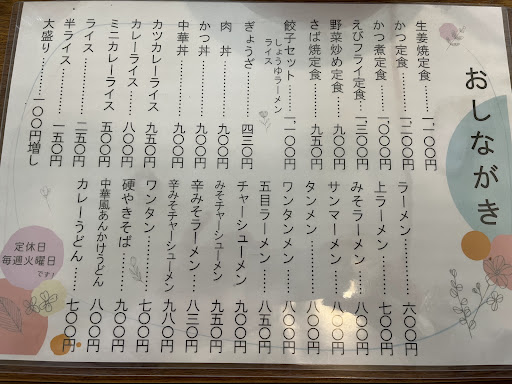 おしながき
生姜焼定食……一、一〇〇円
かつ定食……一、二〇〇円
かつ煮定食……一、〇〇〇円
えびフライ定食…一、三〇〇円
野菜炒め定食……九〇〇円
さば焼定食……九五〇円
餃子セット……一、一〇〇円
しょうゆラーメン
ライス
ぎょうざ……四三〇円
肉丼……九〇〇円
かつ丼……九〇〇円
中華丼……九〇〇円
カツカレーライス…九五〇円
カレーライス……八〇〇円
ミニカレーライス…五〇〇円
ライス……二五〇円
半ライス……一五〇円
大盛り……一〇〇円増し
ラーメン……六〇〇円
上ラーメン……七〇〇円
みそラーメン……八〇〇円
サンマーメン……八〇〇円
タンメン……八〇〇円
ワンタンメン……八〇〇円
五目ラーメン……八五〇円
チャーシューメン…九〇〇円
みそチャーシューメン…九五〇円
辛みそラーメン……八三〇円
辛みそチャーシューメン…九八〇円
ワンタン……七〇〇円
硬やきそば……九〇〇円
中華風あんかけうどん…八〇〇円
カレーうどん……七〇〇円
定休日
毎週火曜日
です!